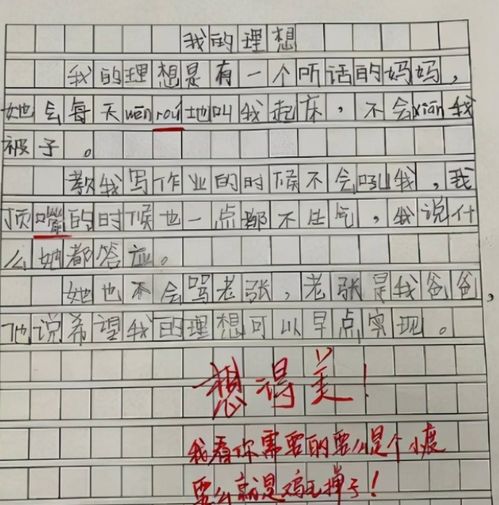 我的理想
我的理想是有一个听话的妈妈，
她会每天wēn róu地叫我起床，不会xiān我
被子。
教我写作业的时候不会吼我，我
顶嘴的时候也一点都不生气，我说什
么她都答应。
她也不会骂老张，老张是我爸爸，
他说希望我的理想可以早点实现。
想得美！
我看你需要的要么是个小夜
要么就是鸡毛掸子！